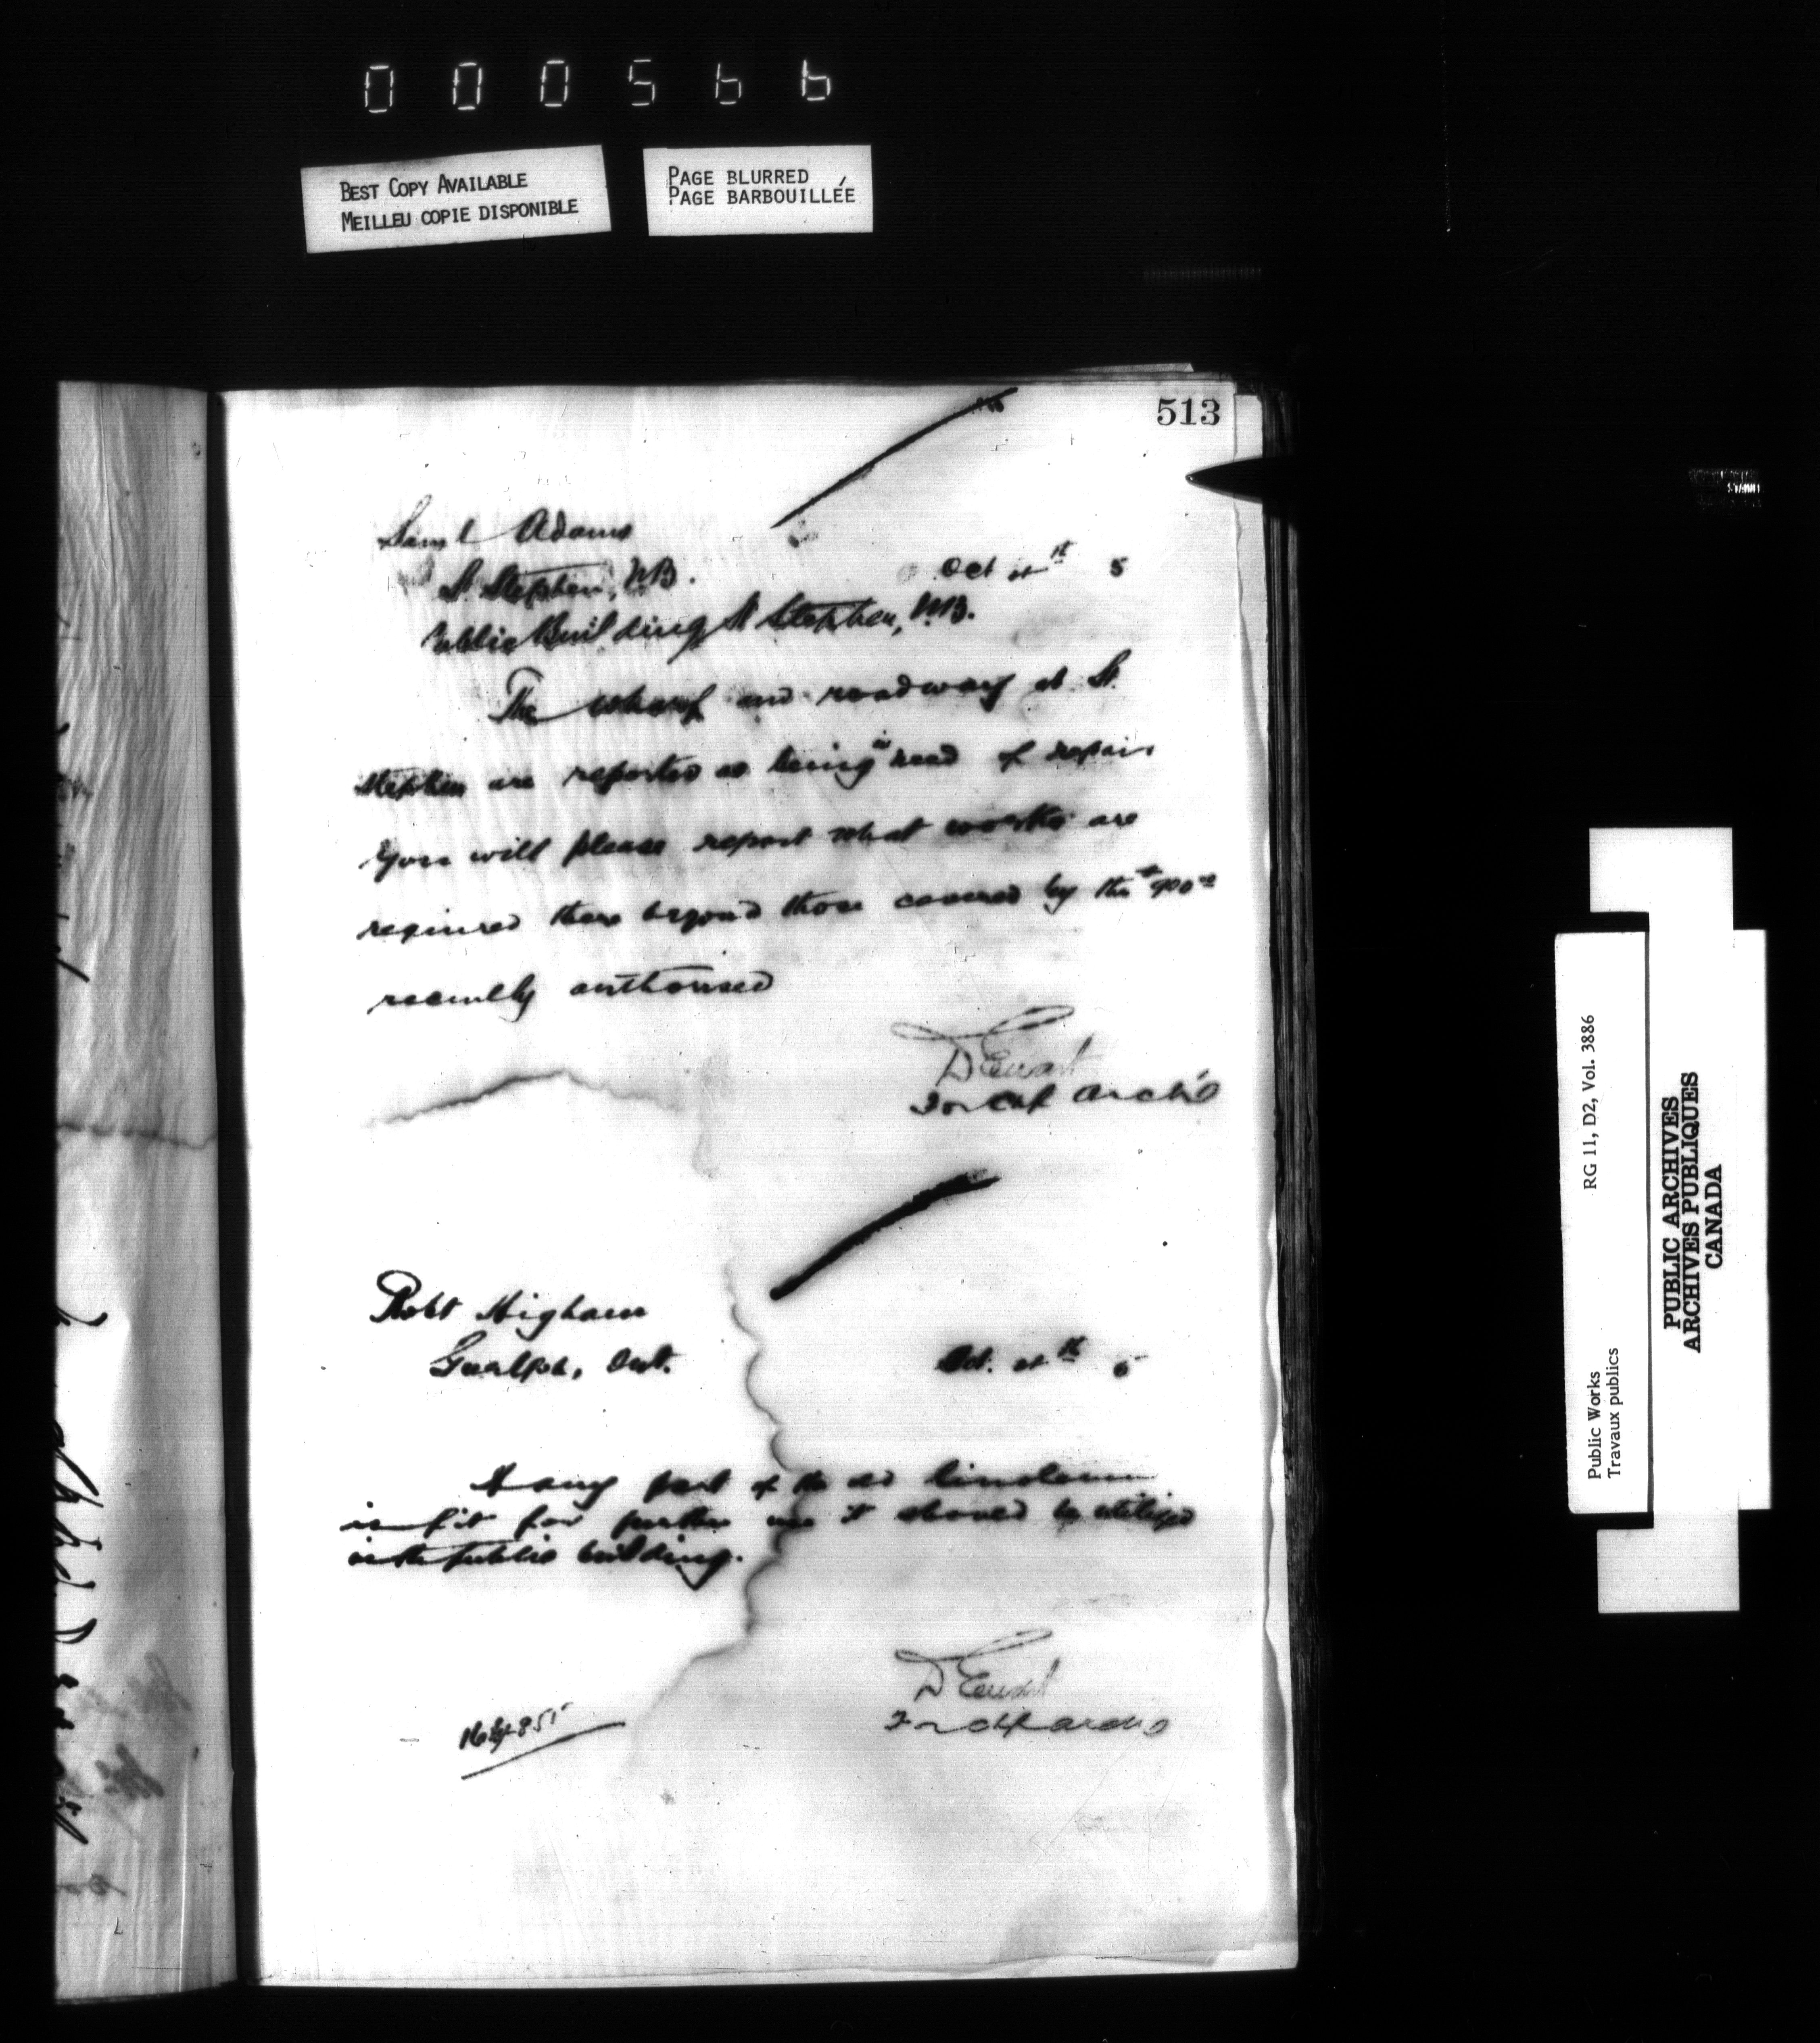 000566
BEST COPY AVAILABLE
MEILLEU COPIE DISPONIBLE
PAGE BLURRED
PAGE BARBOUILLÉE
513
Saml Adams
St. Stephen, N.B.
Oct 5
Public Building St Stephen, N.B.
The wharf and roadway at St.
Stephen are reported as being in need of repair
You will please report what works are
required there beyond those covered by the $900
recently authorised
D Ewart
For Chf Archt
Robt Higham
Guelph, Ont.
Oct. th 5
If any part of the old linoleum
is fit for further use it should be utilized
in the public building.
D Ewart
For chf archt
Public Works
Travaux publics
RG 11, D2, Vol. 3886
PUBLIC ARCHIVES
ARCHIVES PUBLIQUES
CANADA